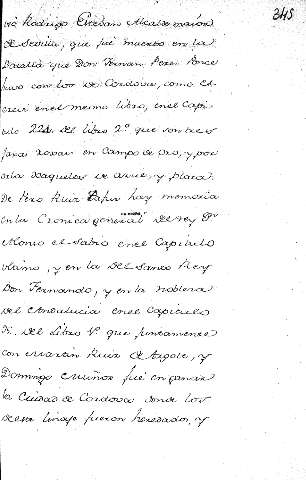 345
Rodrigo Esteban Alcalde maior
de Sevilla, que fué muerto en la
Batalla que Don Fernan Perez Ponce
huvo con los de Cordova, como es-
creví en el mesmo libro, en el Capi-
tulo 221. del libro 2º que son tres
fajas rojas en campo de oro, y por
orla Jaqueles de azul, y plata.
De Pero Ruiz Tafur hay memoria
en la Cronica general del rey Dn.
Alonso el Sabio en el Capitulo
ultimo, y en la del Santo Rey
Don Fernando, y en la nobleza
del Andalucia en el Capitulo
del Libro 1º que juntamente
con Martin Ruiz de Argote, y
Domingo Muñoz fué en ganar
la Ciudad de Cordova donde los
de este linaje fueron heredados, y